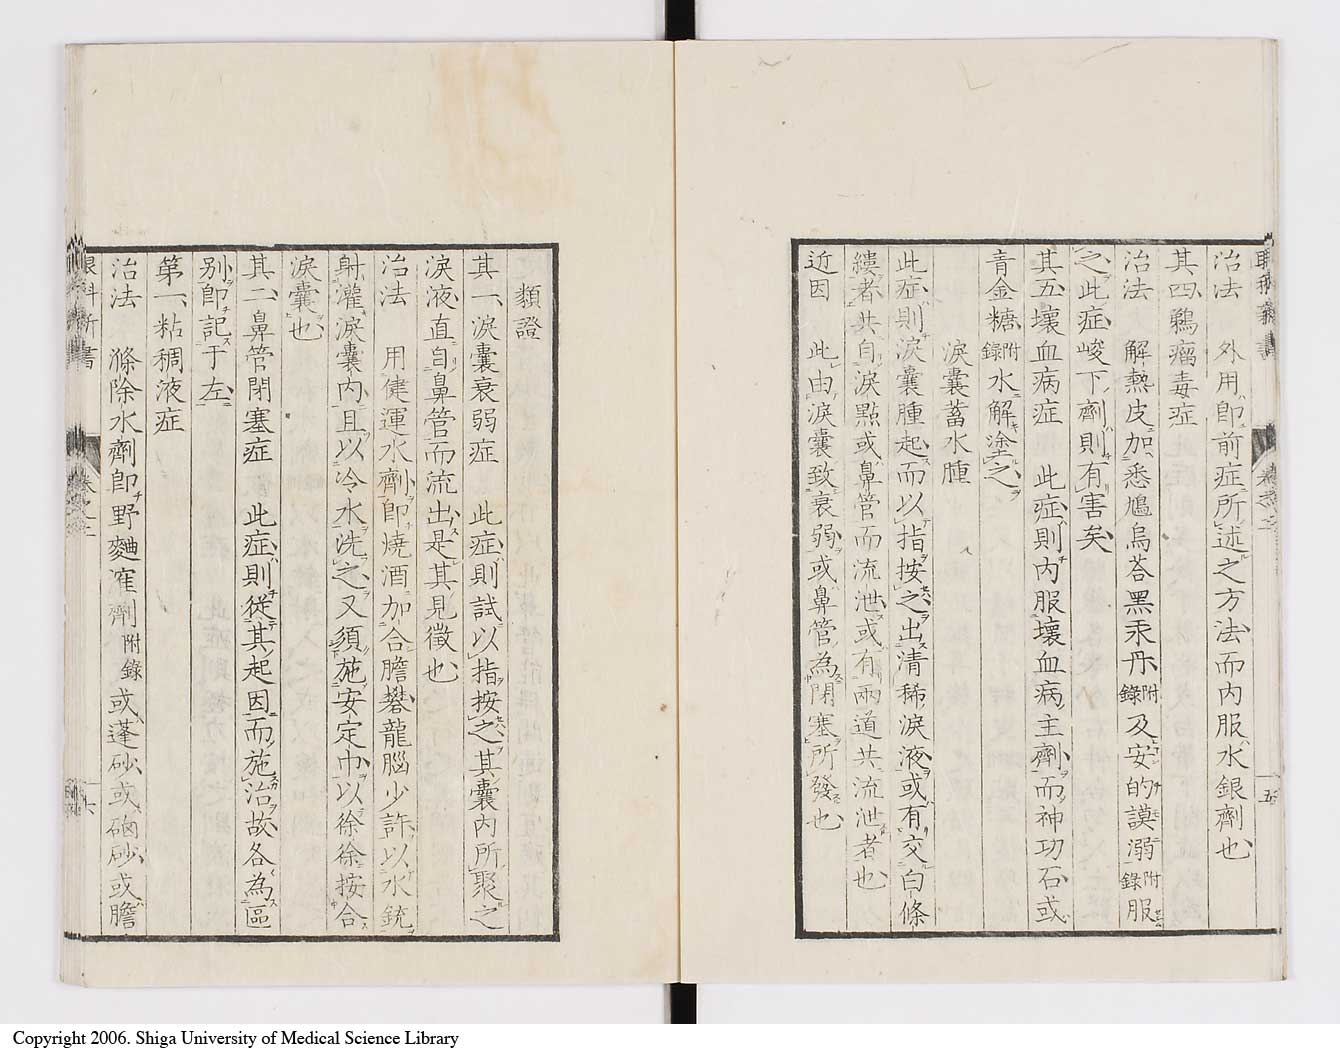 治法　外用即前症所述之方法而内服水銀劑也
其四鵜瘤毒症
治法　解熱皮加悉鳩烏荅黒汞丹附錄及安的謨溺附錄服
之此症峻下劑則有害矣
其五壞血病症　此症則内服壞血病主劑而神功石或
青金糖附錄水解塗之
淚囊蓄水腫
此症則淚囊腫起而以指按之出清稀淚液或有交白條
縷者共自淚點或鼻管而流泄或有兩道共流泄者也
近因　此由淚囊致衰弱或鼻管為閉塞所發也
五
類證
其一淚囊衰弱症　此症則試以指按之其囊内所聚之
淚液直自鼻管而流出是其見徵也
治法　用健運水劑即燒酒加合膽礬龍腦少許以水銃
射灌淚囊内且以冷水洗之又須施安定巾以徐徐按合
淚囊也
其二鼻管閉塞症　此症則從其起因而施治故各為區
別即記于左
第一粘稠液症
治法　滌除水劑即野麴窪劑附錄或蓬砂或硇砂或膽
眼科新書　卷之二　六